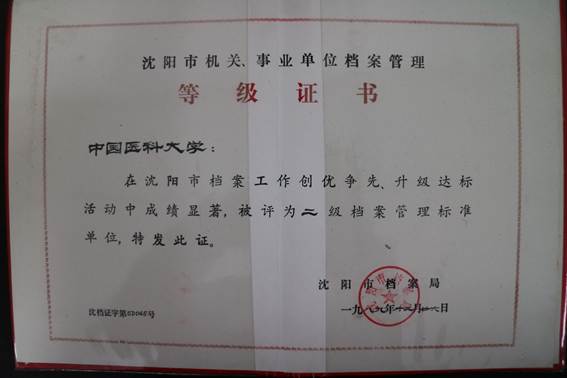 沈阳市机关、事业单位档案管理
等级证书
中国医科大学：
在沈阳市档案工作创优争先、升级达标
活动中成绩显著，被评为二级档案管理标准
单位，特发此证。
沈阳市档案局
一九八九年十二月廿六日
沈档证字第SD065号